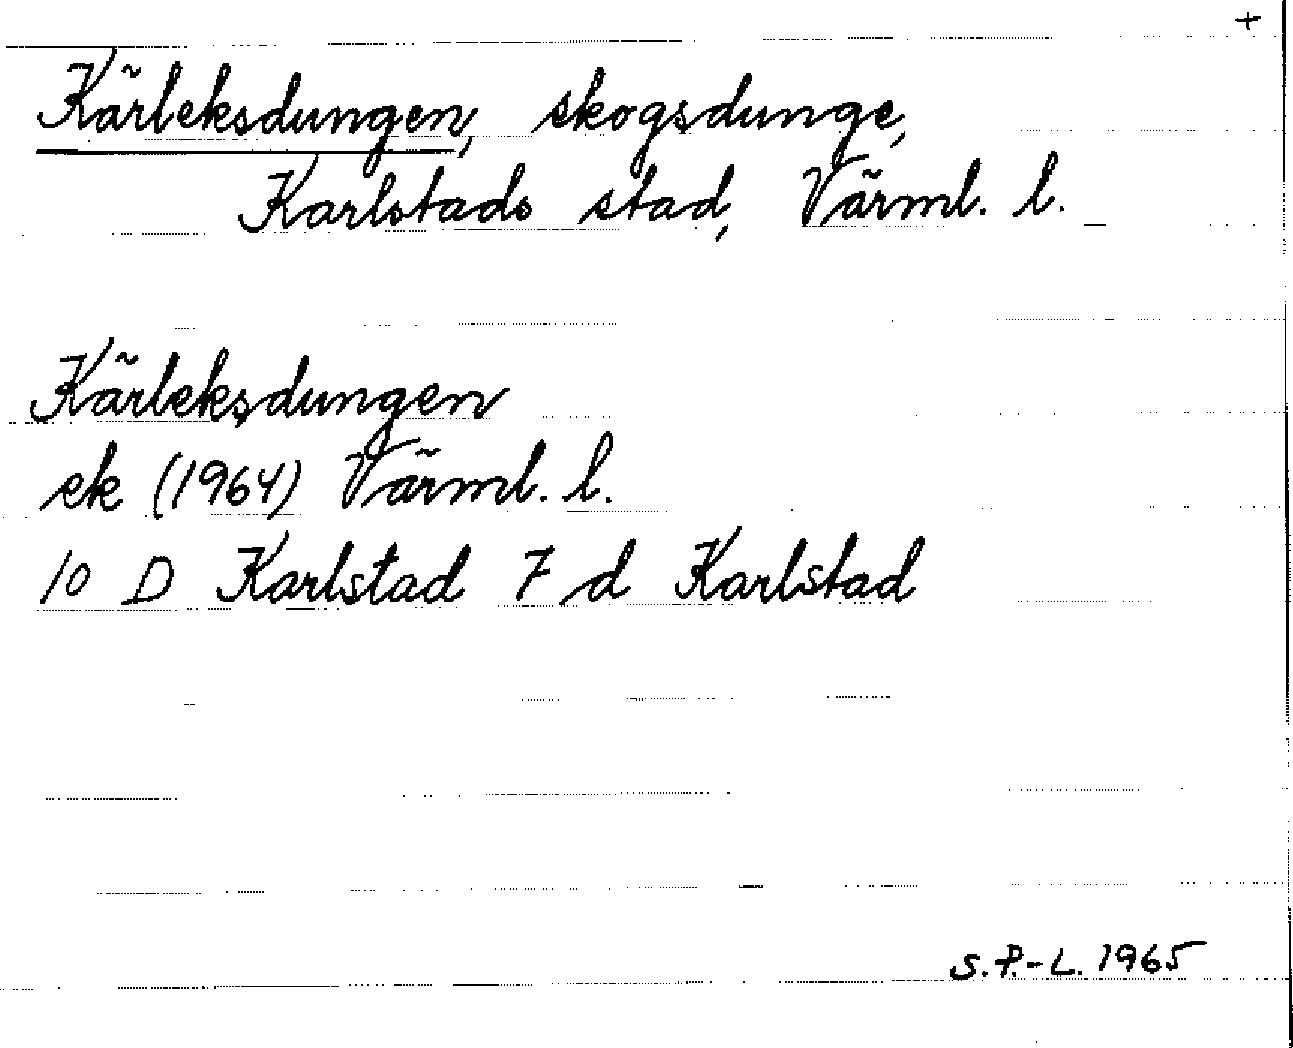 +
Kärleksdungen, skogsdunge,
Karlstads stad, Värml. l.
Kärleksdungen
ek (1964) Värml. l.
10 D Karlstad 7 d Karlstad
S.P.-L. 1965